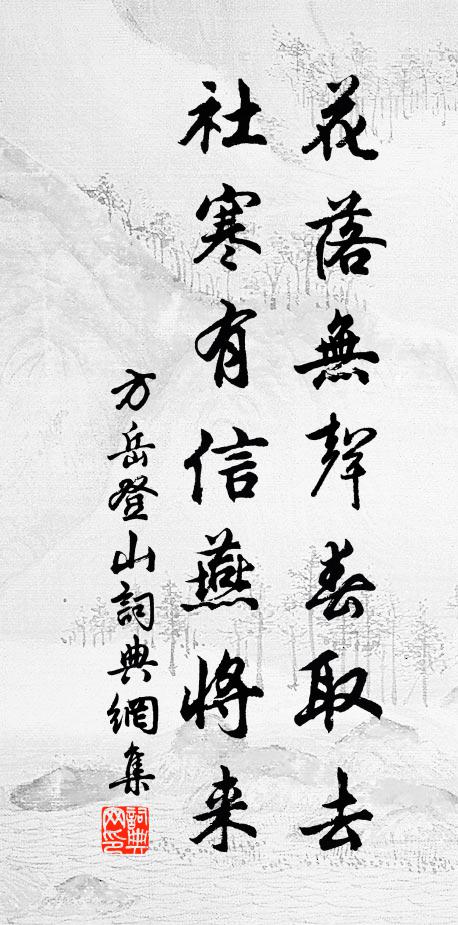 花落無聲春取去
社寒有信燕將来
方岳登山詞典網集
詞典网印